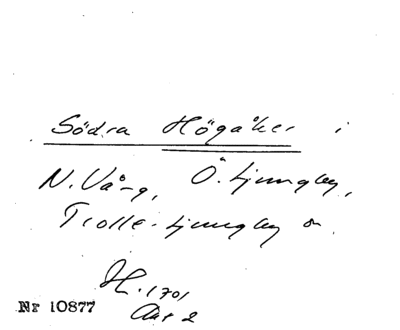 Södra Högåker i
N. Vång, Ö. Ljungby,
Trolle-Ljungby
H. 1701
Nr 10877